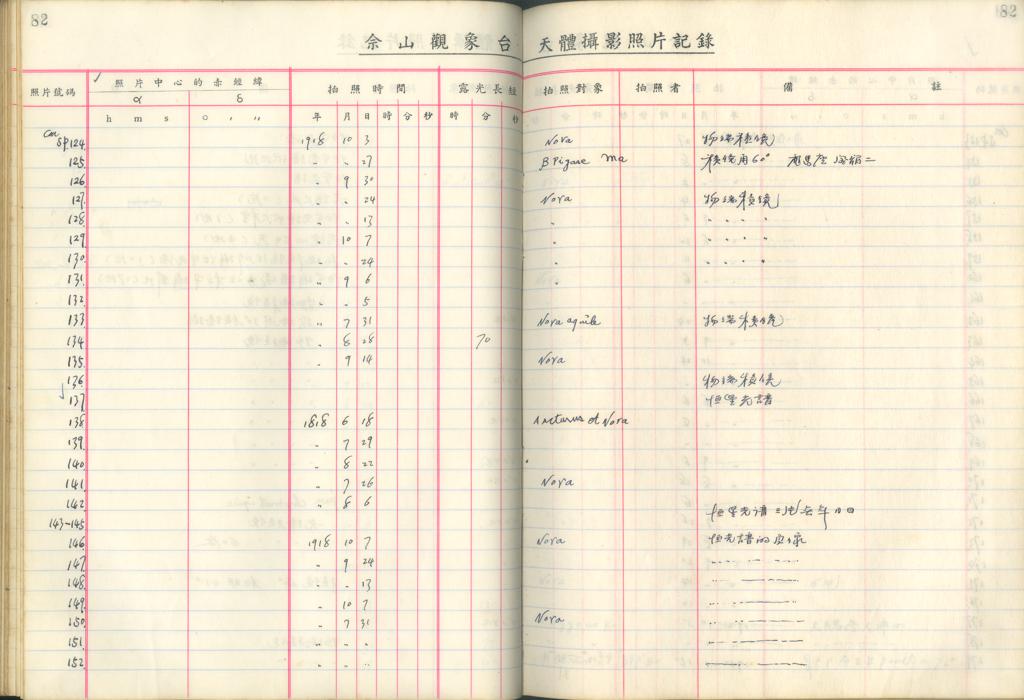 82
182
佘山觀象台 天體攝影照片記錄
照片號碼 照片中心的赤經緯 拍照時間 露光長短 拍照對象 拍照者 備註
α δ
h m s ○ , ,, 年 月 日 時 分 秒 時 分 秒
SP124 1918 10 3 Nova 物端稜鏡
125 " " 27 B Pigase Ma
126 " 9 30
127 " " 24 Nova 物端稜鏡
128 " " 13 " " " " "
129 " 10 7 " " " " "
130 " " 24 " " " " "
131 " 9 6 "
132 " " 5
133 " 7 31 Nova aquile 物端稜鏡
134 " 8 28 70
135 " 9 14 Nova
136 物端稜鏡
137 恒星光譜
138 1818 6 18 Arcturus et Nova
139 " 7 29
140 " 8 22
141 " 7 26 Nova
142 " 8 6
143-145 恒星光譜
146 1918 10 7 Nova
147 " 9 24
148 " " 13
149 " 10 7
150 " 7 31 Nova
151 " " "
152 " " "